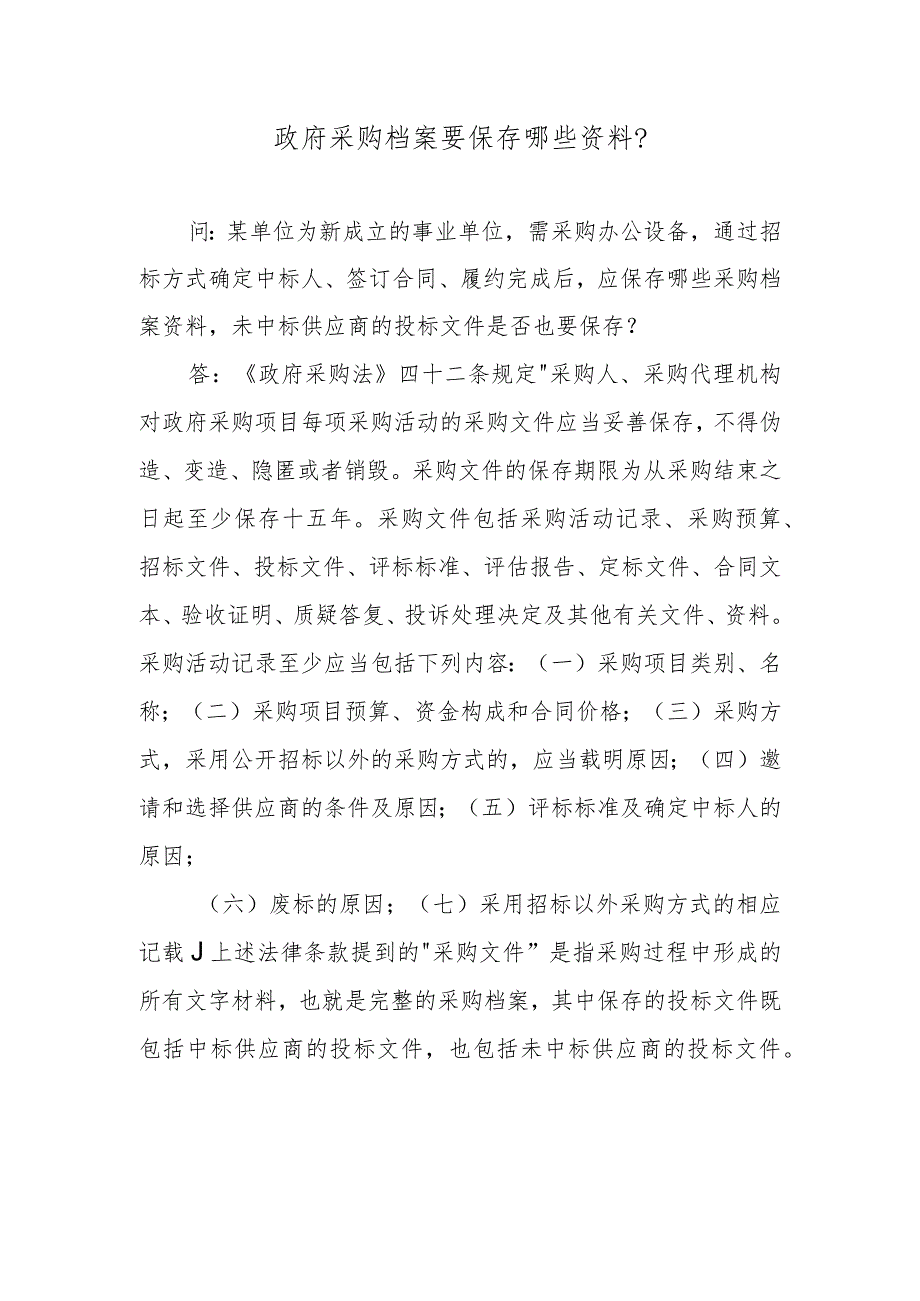 政府采购档案要保存哪些资料?
问：某单位为新成立的事业单位，需采购办公设备，通过招
标方式确定中标人、签订合同、履约完成后，应保存哪些采购档
案资料，未中标供应商的投标文件是否也要保存？
答：《政府采购法》四十二条规定"采购人、采购代理机构
对政府采购项目每项采购活动的采购文件应当妥善保存，不得伪
造、变造、隐匿或者销毁。采购文件的保存期限为从采购结束之
日起至少保存十五年。采购文件包括采购活动记录、采购预算、
招标文件、投标文件、评标标准、评估报告、定标文件、合同文
本、验收证明、质疑答复、投诉处理决定及其他有关文件、资料。
采购活动记录至少应当包括下列内容：（一）采购项目类别、名
称；（二）采购项目预算、资金构成和合同价格；（三）采购方
式，采用公开招标以外的采购方式的，应当载明原因；（四）邀
请和选择供应商的条件及原因；（五）评标标准及确定中标人的
原因；
（六）废标的原因；（七）采用招标以外采购方式的相应
记载J上述法律条款提到的"采购文件”是指采购过程中形成的
所有文字材料，也就是完整的采购档案，其中保存的投标文件既
包括中标供应商的投标文件，也包括未中标供应商的投标文件。